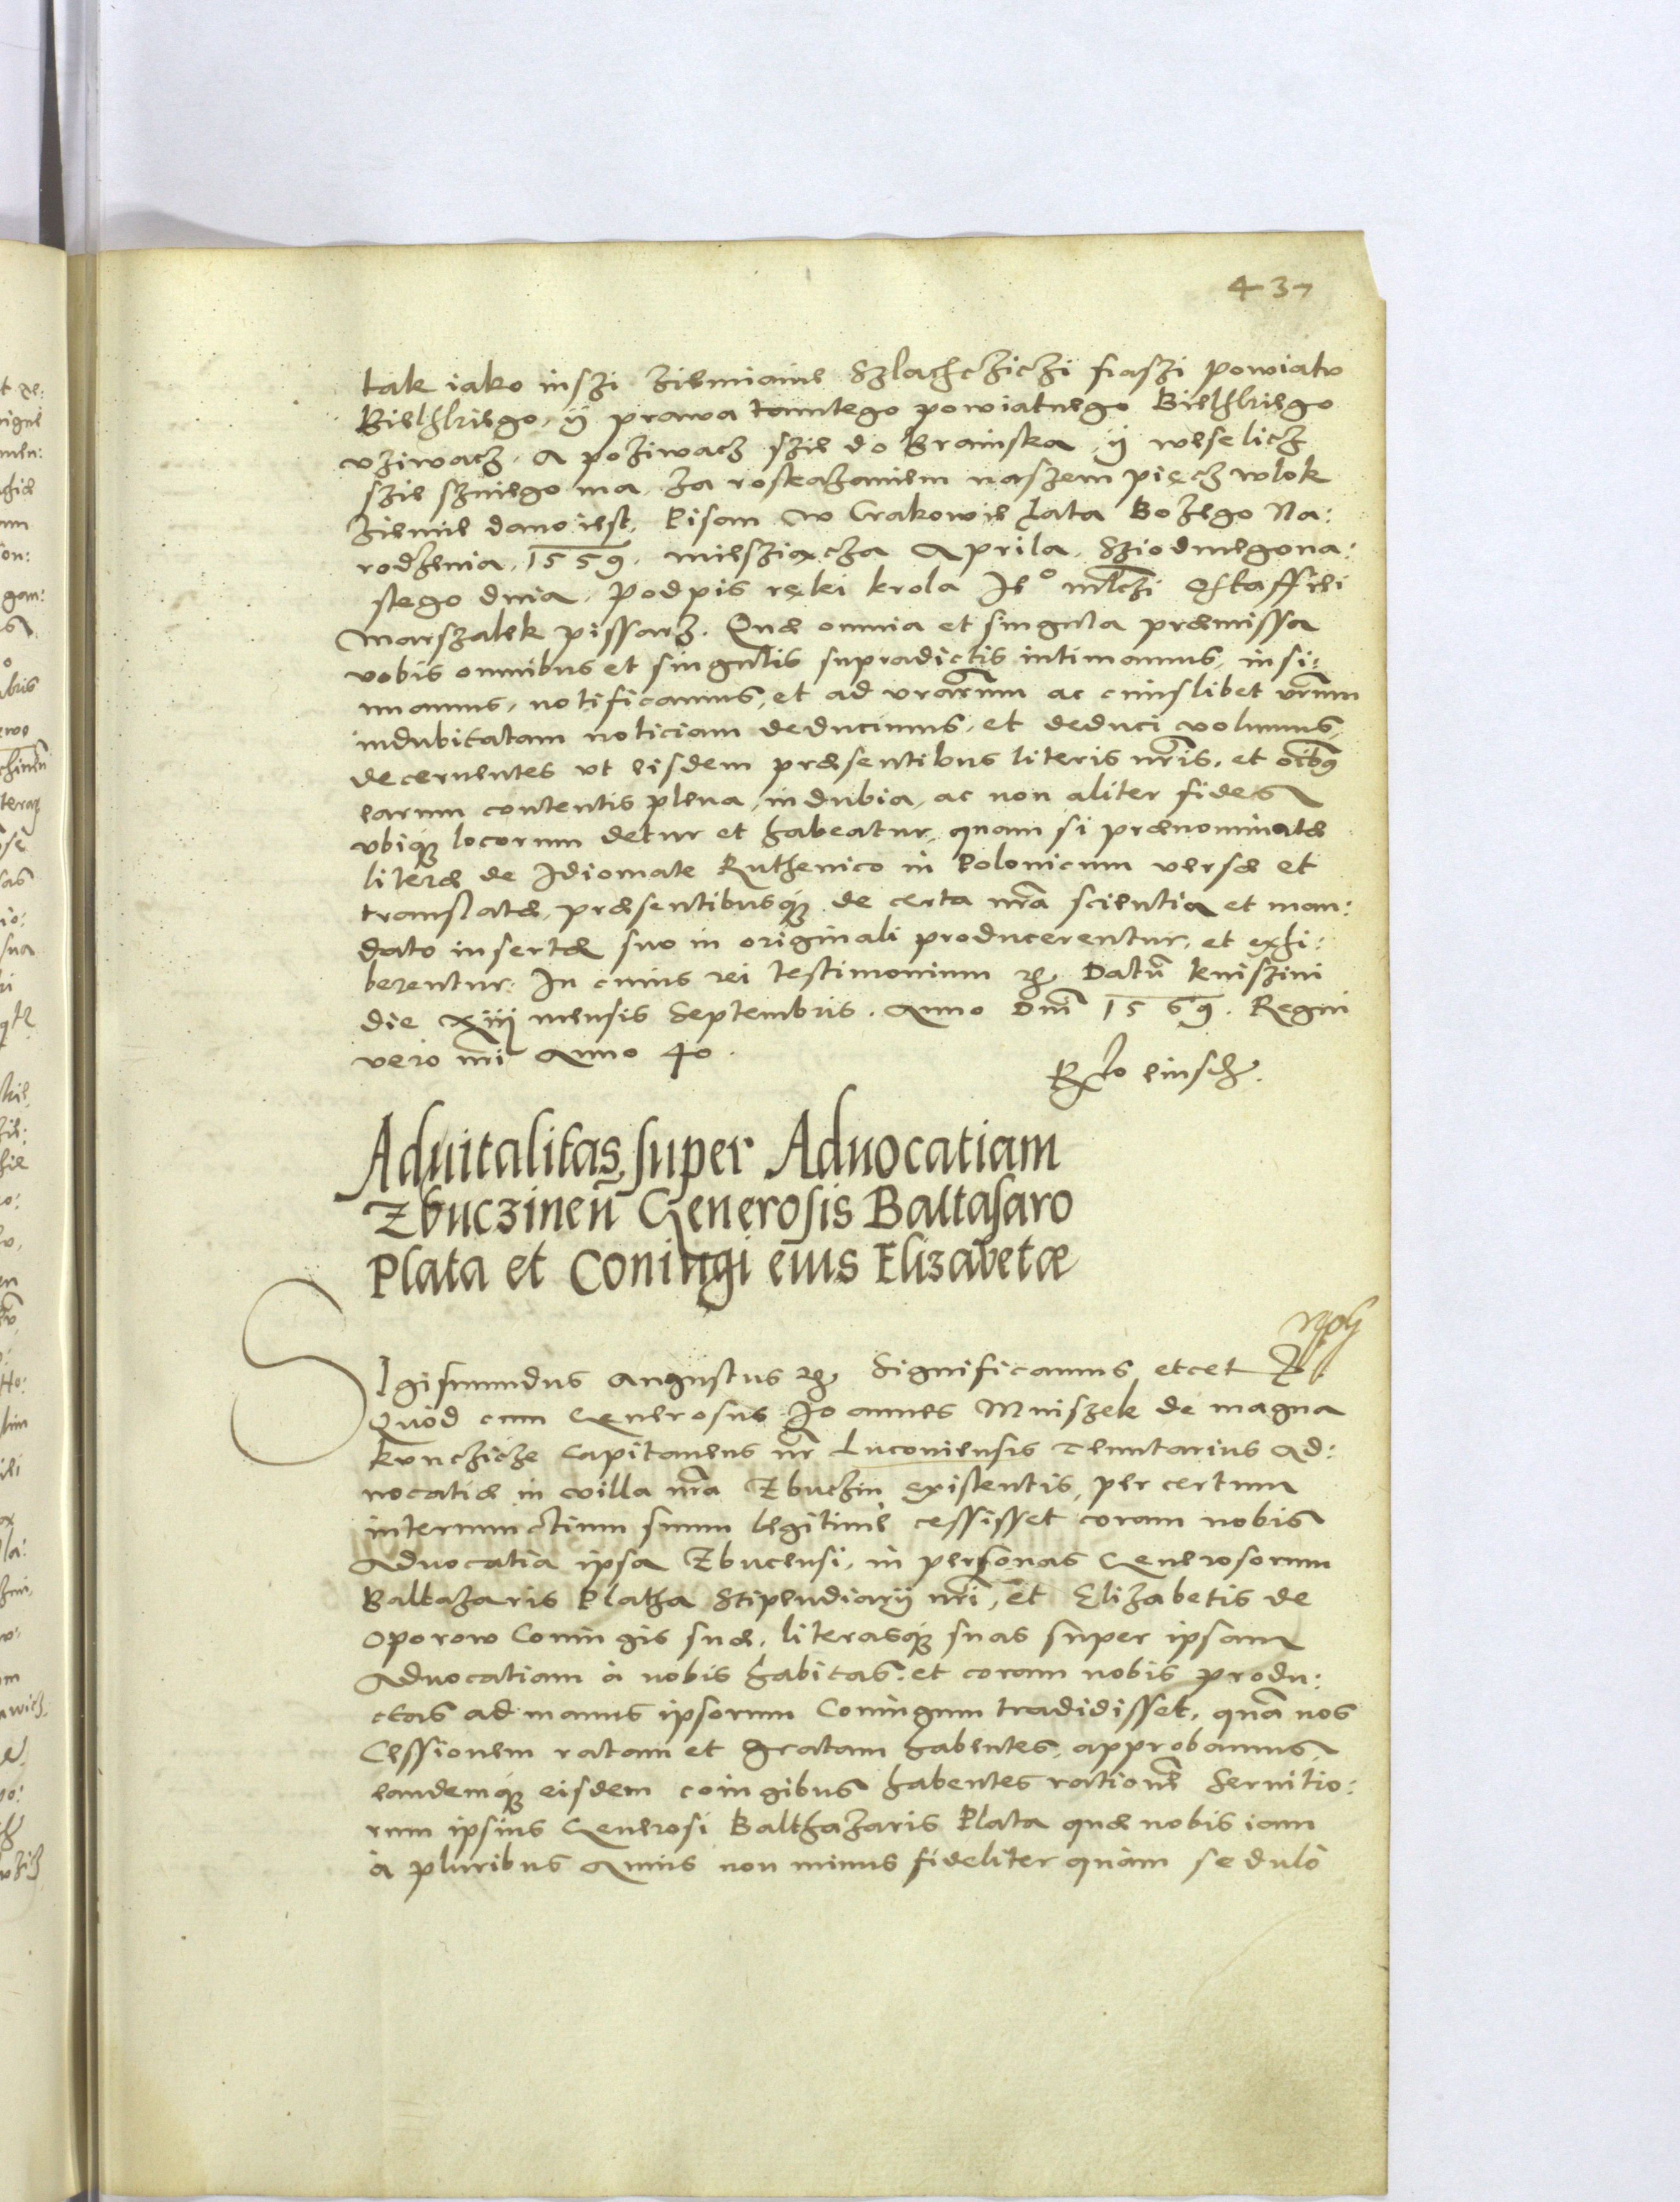 437
tak iako inszi ziemianie Szlachcziczi naszi powiatu
Bielskiego, ÿ prawa tamtego powiatnego Bielskiego
vżiwacz. A pożiwacz szie do Brainska ÿ weselicz
szie szniego ma. Za roskazaniem naszem pięcz wlok
ziemie dano iest. Pisan w Crakowie Lata Bożego Na:
rodzenia. 1559. mieszia̧cza Aprila. Sziodmegona:
stego dnia. Podpis ręki krola Ie° mlczi Ostaffiei
Marszalek pissarz. Quæ omnia et singula præmissa
vobis omnibus et singulis supradictis intimamus, insi:
nuamus, notificamus, et ad vrarum ac cuiuslibet vrum
indubitatam noticiam deducimus, et deduci volumus,
decernentes vt eisdem præsentibus literis nris, et oibus
earum contentis plena, indubia, ac non aliter fides
vbiqȝ locorum detur et habeatur, quam si prænominatæ
literæ de Idiomate Ruthenico in Polonicum versæ et
translatæ, præsentibusqȝ de certa nra scientia et man:
dato insertæ suo in originali producerentur, et exhi:
berentur. In cuius rei testimonium etc. Datū Kniszini
die xiiij mensis Septembris. Anno Dni 1569. Regni
vero nri Anno 40.
Rlo eiusdem.
Advitalitas, super Aduocatiam
Zbuczinen̄ Generosis Baltasaro
Plata et Coniugi eius Elizabetæ
SIgismundus Augustus etc. Significamus etcet
Quòd cum Generosus Ioannes Mniszek de magna
Kunczicze Capitaneus nr Luconiensis Tenutarius Ad:
uocatiæ in villa nra Zbuczin existentis, per certum
internunctium suum legitimè cessisset coram nobis
Aduocatia ipsa Zbucensi, in personas Generosorum
Baltazaris Platha Stipendiarij nri, et Elizabetis de
Oporow Coniugis suæ, literasqȝ suas super ipsam
Aduocatiam à nobis habitas, et coram nobis produ:
ctas ad manus ipsorum Coniugum tradidisset, quā nos
Cessionem ratam et gratam habentes, approbamus,
eandemqȝ eisdem coiugibus habentes rationē Seruitio:
rum ipsius Generosi Balthazaris Plata quæ nobis iam
à pluribus Annis non minus fideliter quàm sedulò